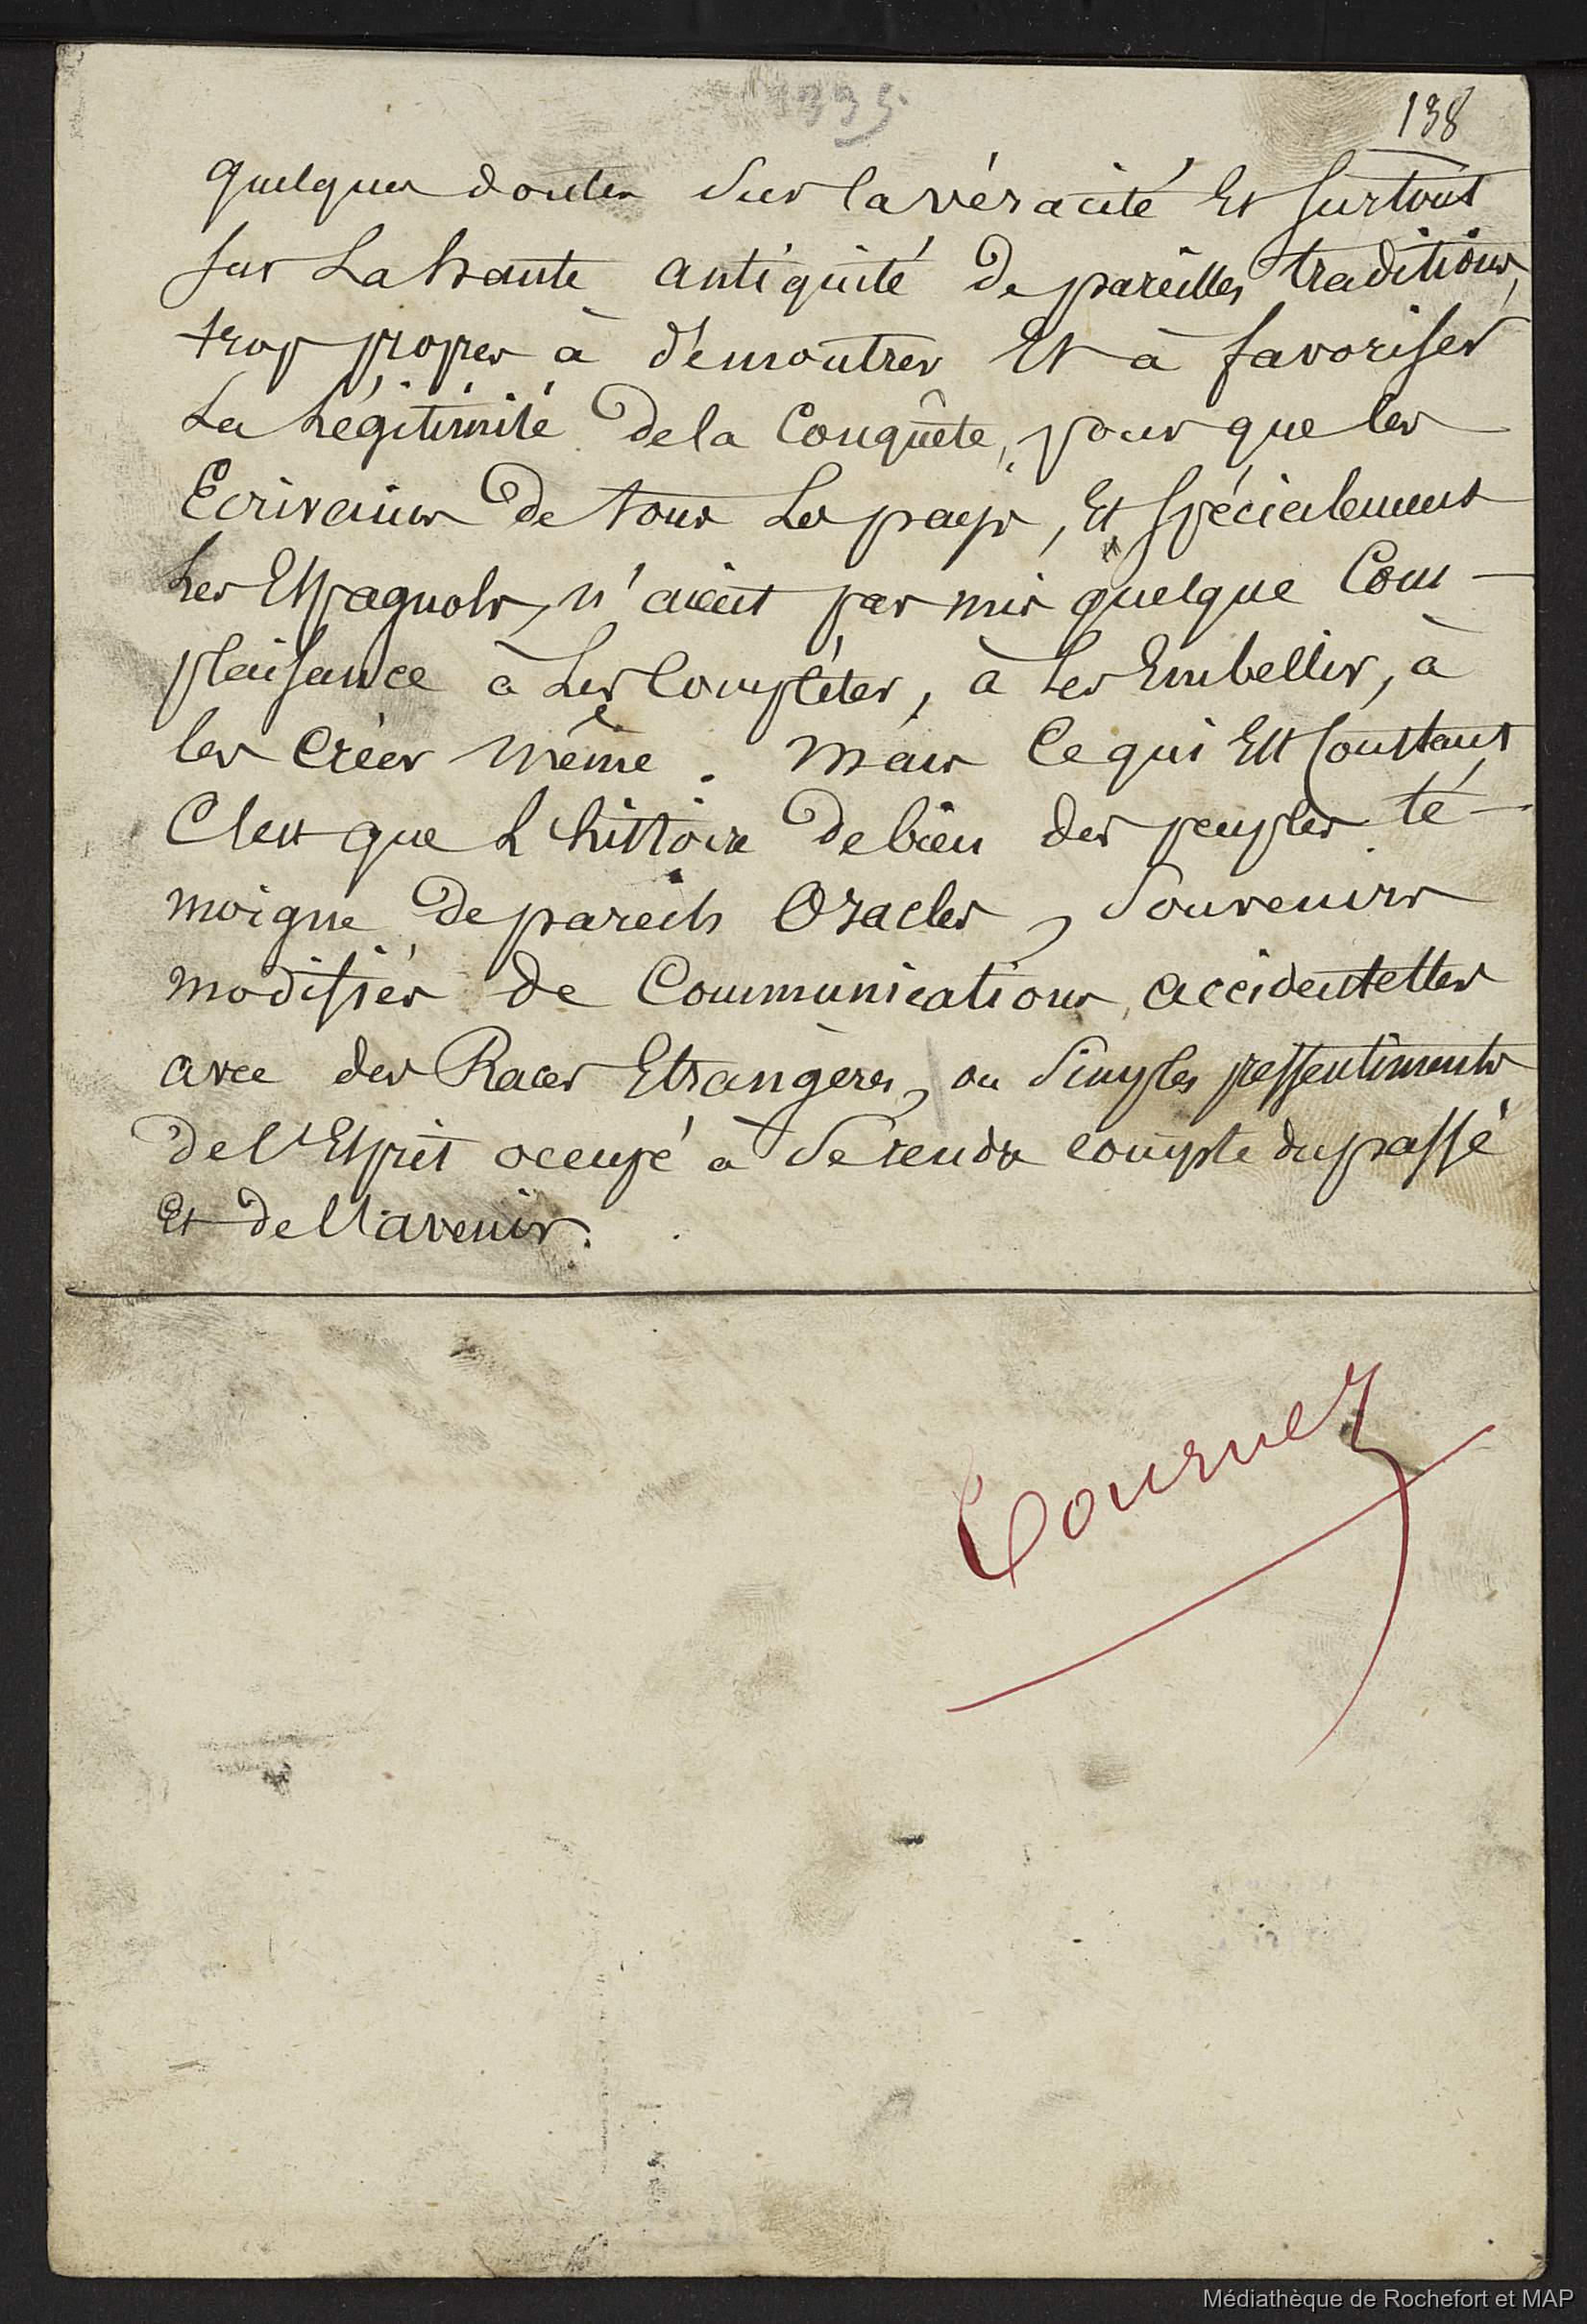 138
quelques doutes sur la véracité Et surtout
sur La haute antiquité De pareilles traditions,
trop propres à démontrer Et à favoriser
La Légitimité De la Conquête, pour que les
Ecrivains De tous Les pays, Et spécialement
Les Espagnols, n'aient pas mis quelque Com-
plaisance à Les Compléter, à Les Embellir, à
les Créer même. Mais Ce qui Est Constant
C'est que L'histoire De bien des peuples té-
moigne De pareils Oracles, Souvenirs
modifiés de Communications accidentelles
avec des Races Etrangères, ou Simples pressentiments
De l'Esprit occupé à Se rendre compte du passé
Et De l'avenir.
Tournez
Médiathèque de Rochefort et MAP